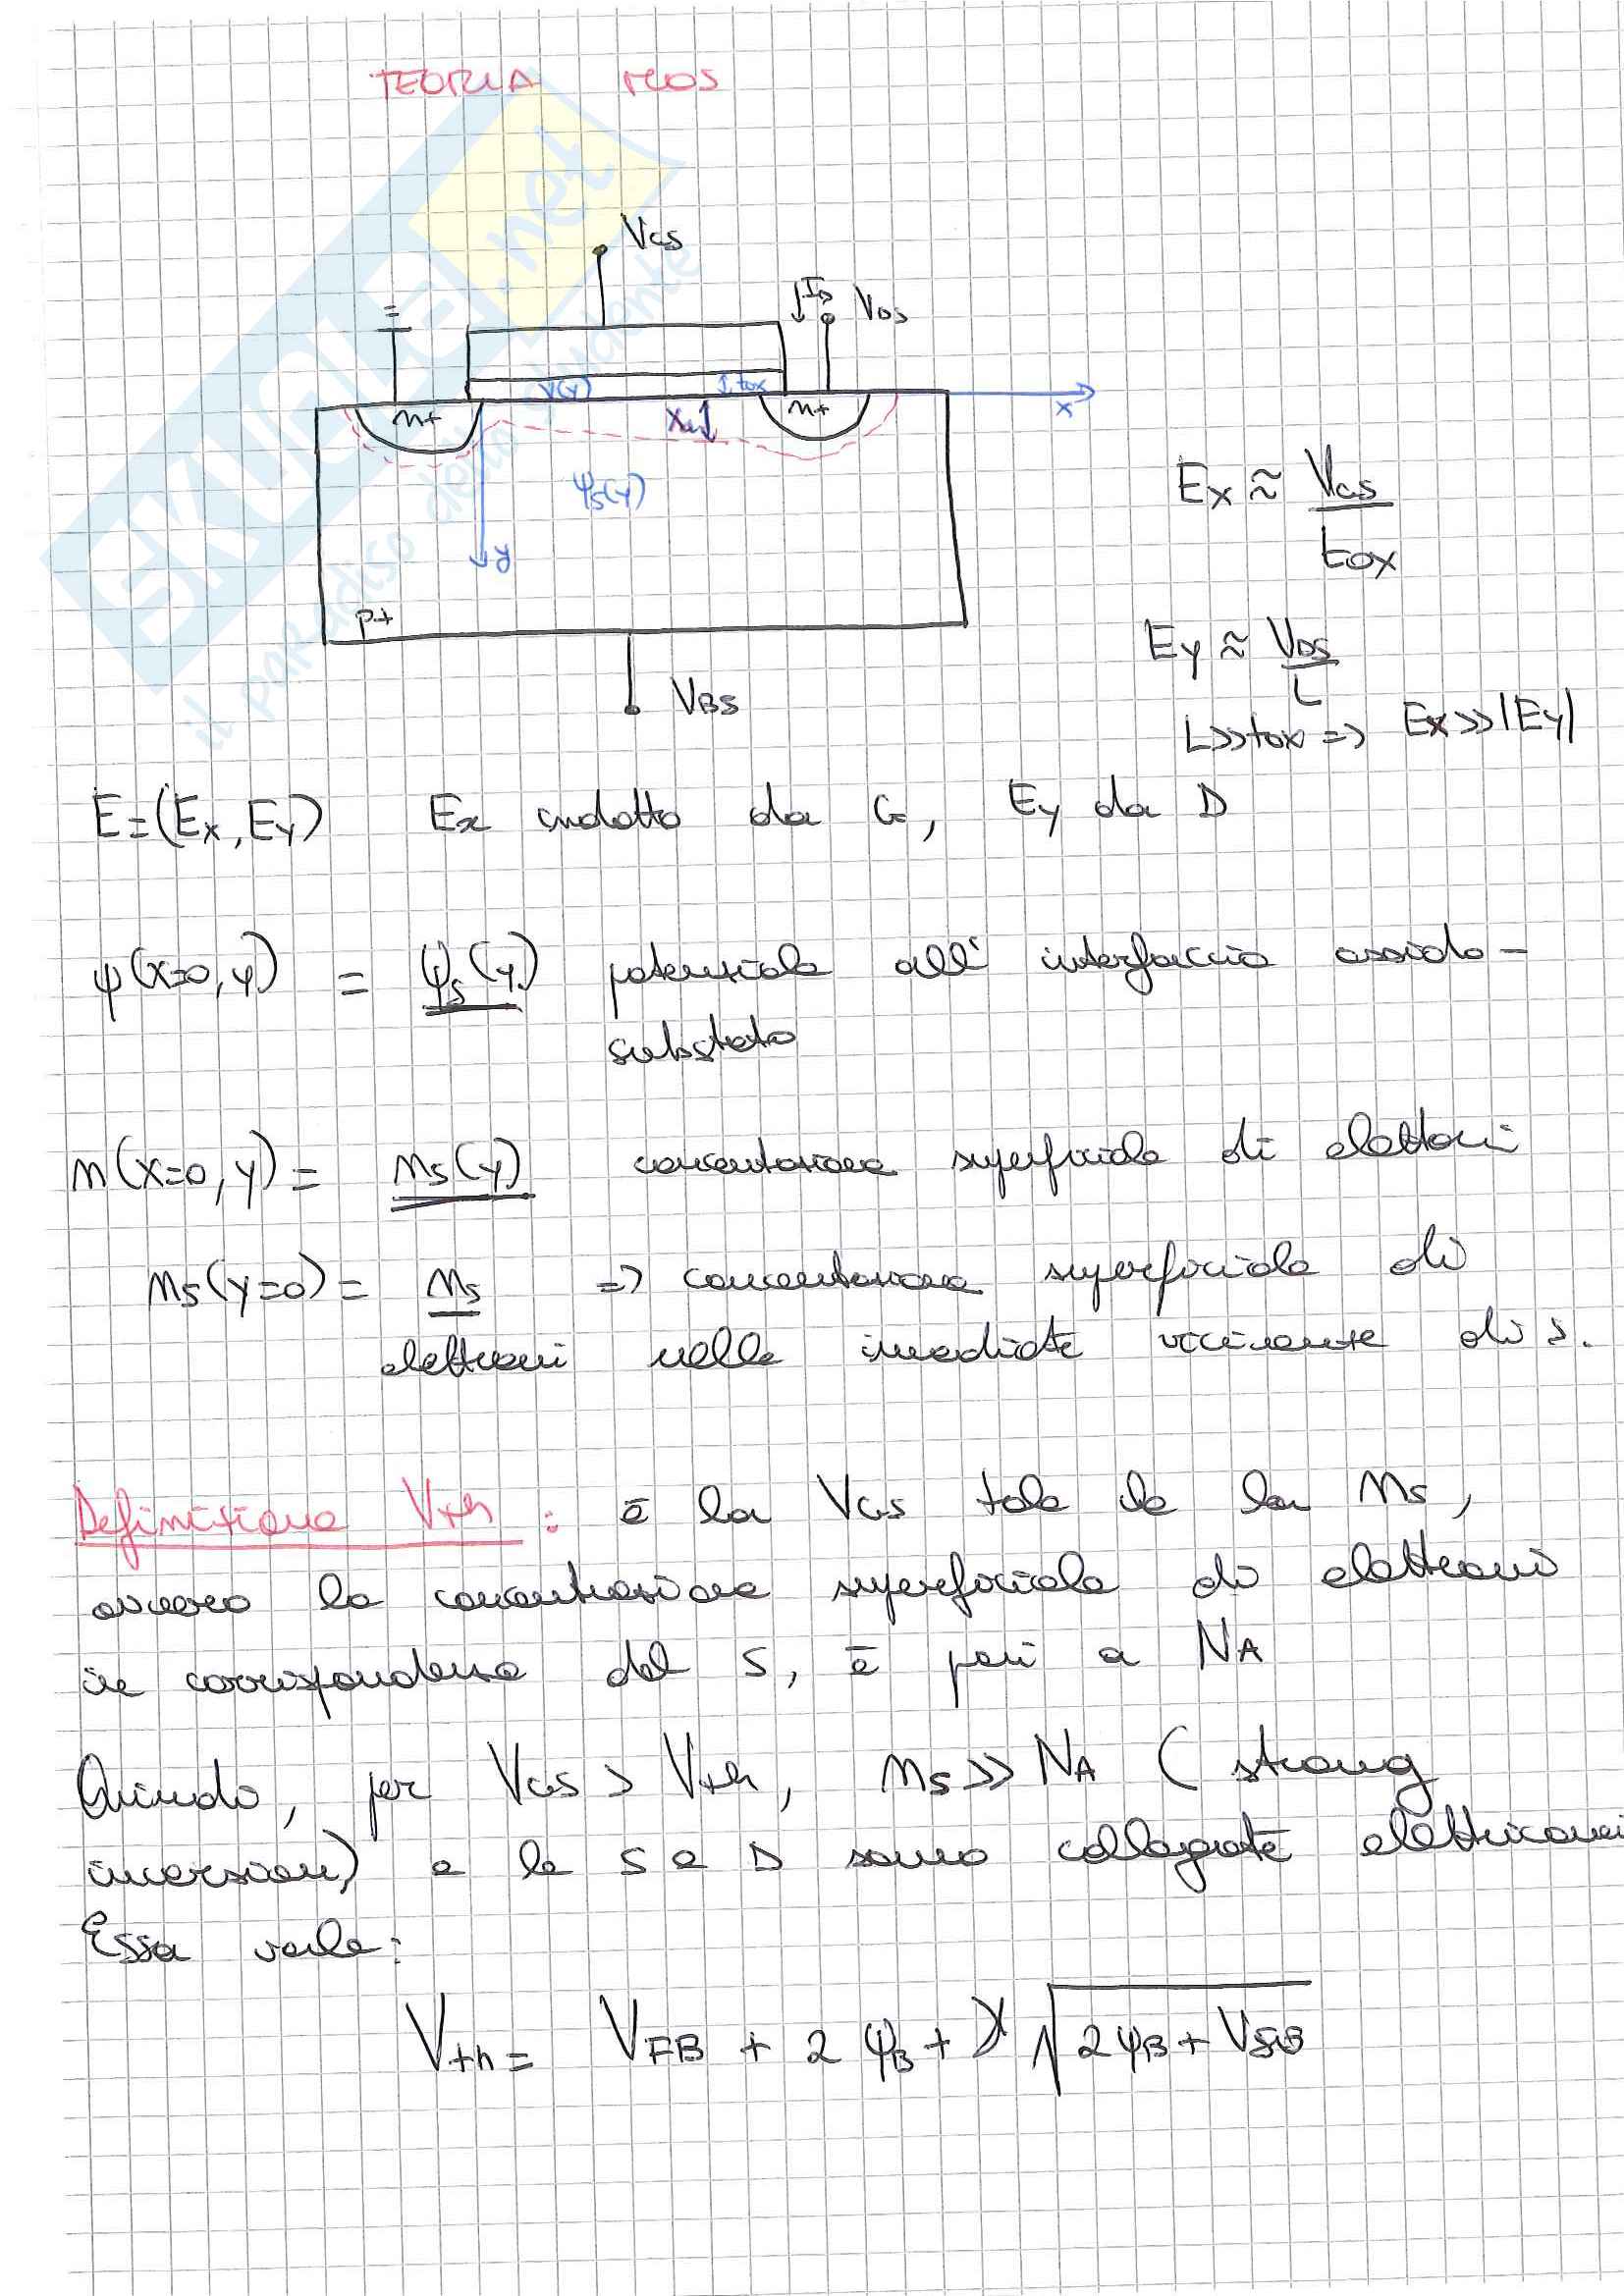 TEORIA MOS
VGS
ID VDS
V(y) tox
n+ n+
x
ψs(y)
y
p+
VBS
Ex ≈ VGS
tox
Ey ≈ VDS
L
L>>tox => Ex>>|Ey|
E=(Ex,Ey) Ex indotto da G, Ey da D
ψ(x=0,y) = ψs(y) potenziale all' interfaccia ossido-
substrato
n(x=0,y) = ns(y) concentrazione superficiale di elettroni
ns(y=0) = ns => concentrazione superficiale di
elettroni nelle immediate vicinanze di S.
Definizione Vth : è la VGS tale che la ns,
ovvero la concentrazione superficiale di elettroni
in corrispondenza del S, è pari a NA
Quindi, per VGS > Vth, ns >> NA (strong
inversion) e le S e D sono collegate
Essa vale:
Vth = VFB + 2ψB + γ√2ψB + VSB
SKUOLA.net
il paradiso dello studente